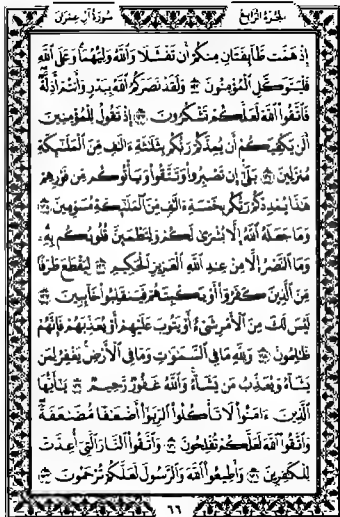 الجزء الرابع سورة آل عمران
إِذْ هَمَّت طَّآئِفَتَانِ مِنكُمْ أَن تَفْشَلَا وَٱللَّهُ وَلِيُّهُمَا ۗ وَعَلَى ٱللَّهِ
فَلْيَتَوَكَّلِ ٱلْمُؤْمِنُونَ ١٢٢ وَلَقَدْ نَصَرَكُمُ ٱللَّهُ بِبَدْرٍ وَأَنتُمْ أَذِلَّةٌ ۖ
فَٱتَّقُوا۟ ٱللَّهَ لَعَلَّكُمْ تَشْكُرُونَ ١٢٣ إِذْ تَقُولُ لِلْمُؤْمِنِينَ
أَلَن يَكْفِيَكُمْ أَن يُمِدَّكُمْ رَبُّكُم بِثَلَـٰثَةِ ءَالَـٰفٍ مِّنَ ٱلْمَلَـٰٓئِكَةِ
مُنزَلِينَ ١٢٤ بَلَىٰٓ ۚ إِن تَصْبِرُوا۟ وَتَتَّقُوا۟ وَيَأْتُوكُم مِّن فَوْرِهِمْ
هَـٰذَا يُمْدِدْكُمْ رَبُّكُم بِخَمْسَةِ ءَالَـٰفٍ مِّنَ ٱلْمَلَـٰٓئِكَةِ مُسَوِّمِينَ ١٢٥
وَمَا جَعَلَهُ ٱللَّهُ إِلَّا بُشْرَىٰ لَكُمْ وَلِتَطْمَئِنَّ قُلُوبُكُم بِهِۦ ۗ
وَمَا ٱلنَّصْرُ إِلَّا مِنْ عِندِ ٱللَّهِ ٱلْعَزِيزِ ٱلْحَكِيمِ ١٢٦ لِيَقْطَعَ طَرَفًا
مِّنَ ٱلَّذِينَ كَفَرُوٓا۟ أَوْ يَكْبِتَهُمْ فَيَنقَلِبُوا۟ خَآئِبِينَ ١٢٧
لَيْسَ لَكَ مِنَ ٱلْأَمْرِ شَىْءٌ أَوْ يَتُوبَ عَلَيْهِمْ أَوْ يُعَذِّبَهُمْ فَإِنَّهُمْ
ظَـٰلِمُونَ ١٢٨ وَلِلَّهِ مَا فِى ٱلسَّمَـٰوَٰتِ وَمَا فِى ٱلْأَرْضِ ۚ يَغْفِرُ لِمَن
يَشَآءُ وَيُعَذِّبُ مَن يَشَآءُ ۚ وَٱللَّهُ غَفُورٌ رَّحِيمٌ ١٢٩ يَـٰٓأَيُّهَا
ٱلَّذِينَ ءَامَنُوا۟ لَا تَأْكُلُوا۟ ٱلرِّبَوٰٓا۟ أَضْعَـٰفًا مُّضَـٰعَفَةً ۖ
وَٱتَّقُوا۟ ٱللَّهَ لَعَلَّكُمْ تُفْلِحُونَ ١٣٠ وَٱتَّقُوا۟ ٱلنَّارَ ٱلَّتِىٓ أُعِدَّتْ
لِلْكَـٰفِرِينَ ١٣١ وَأَطِيعُوا۟ ٱللَّهَ وَٱلرَّسُولَ لَعَلَّكُمْ تُرْحَمُونَ ١٣٢
٦٦